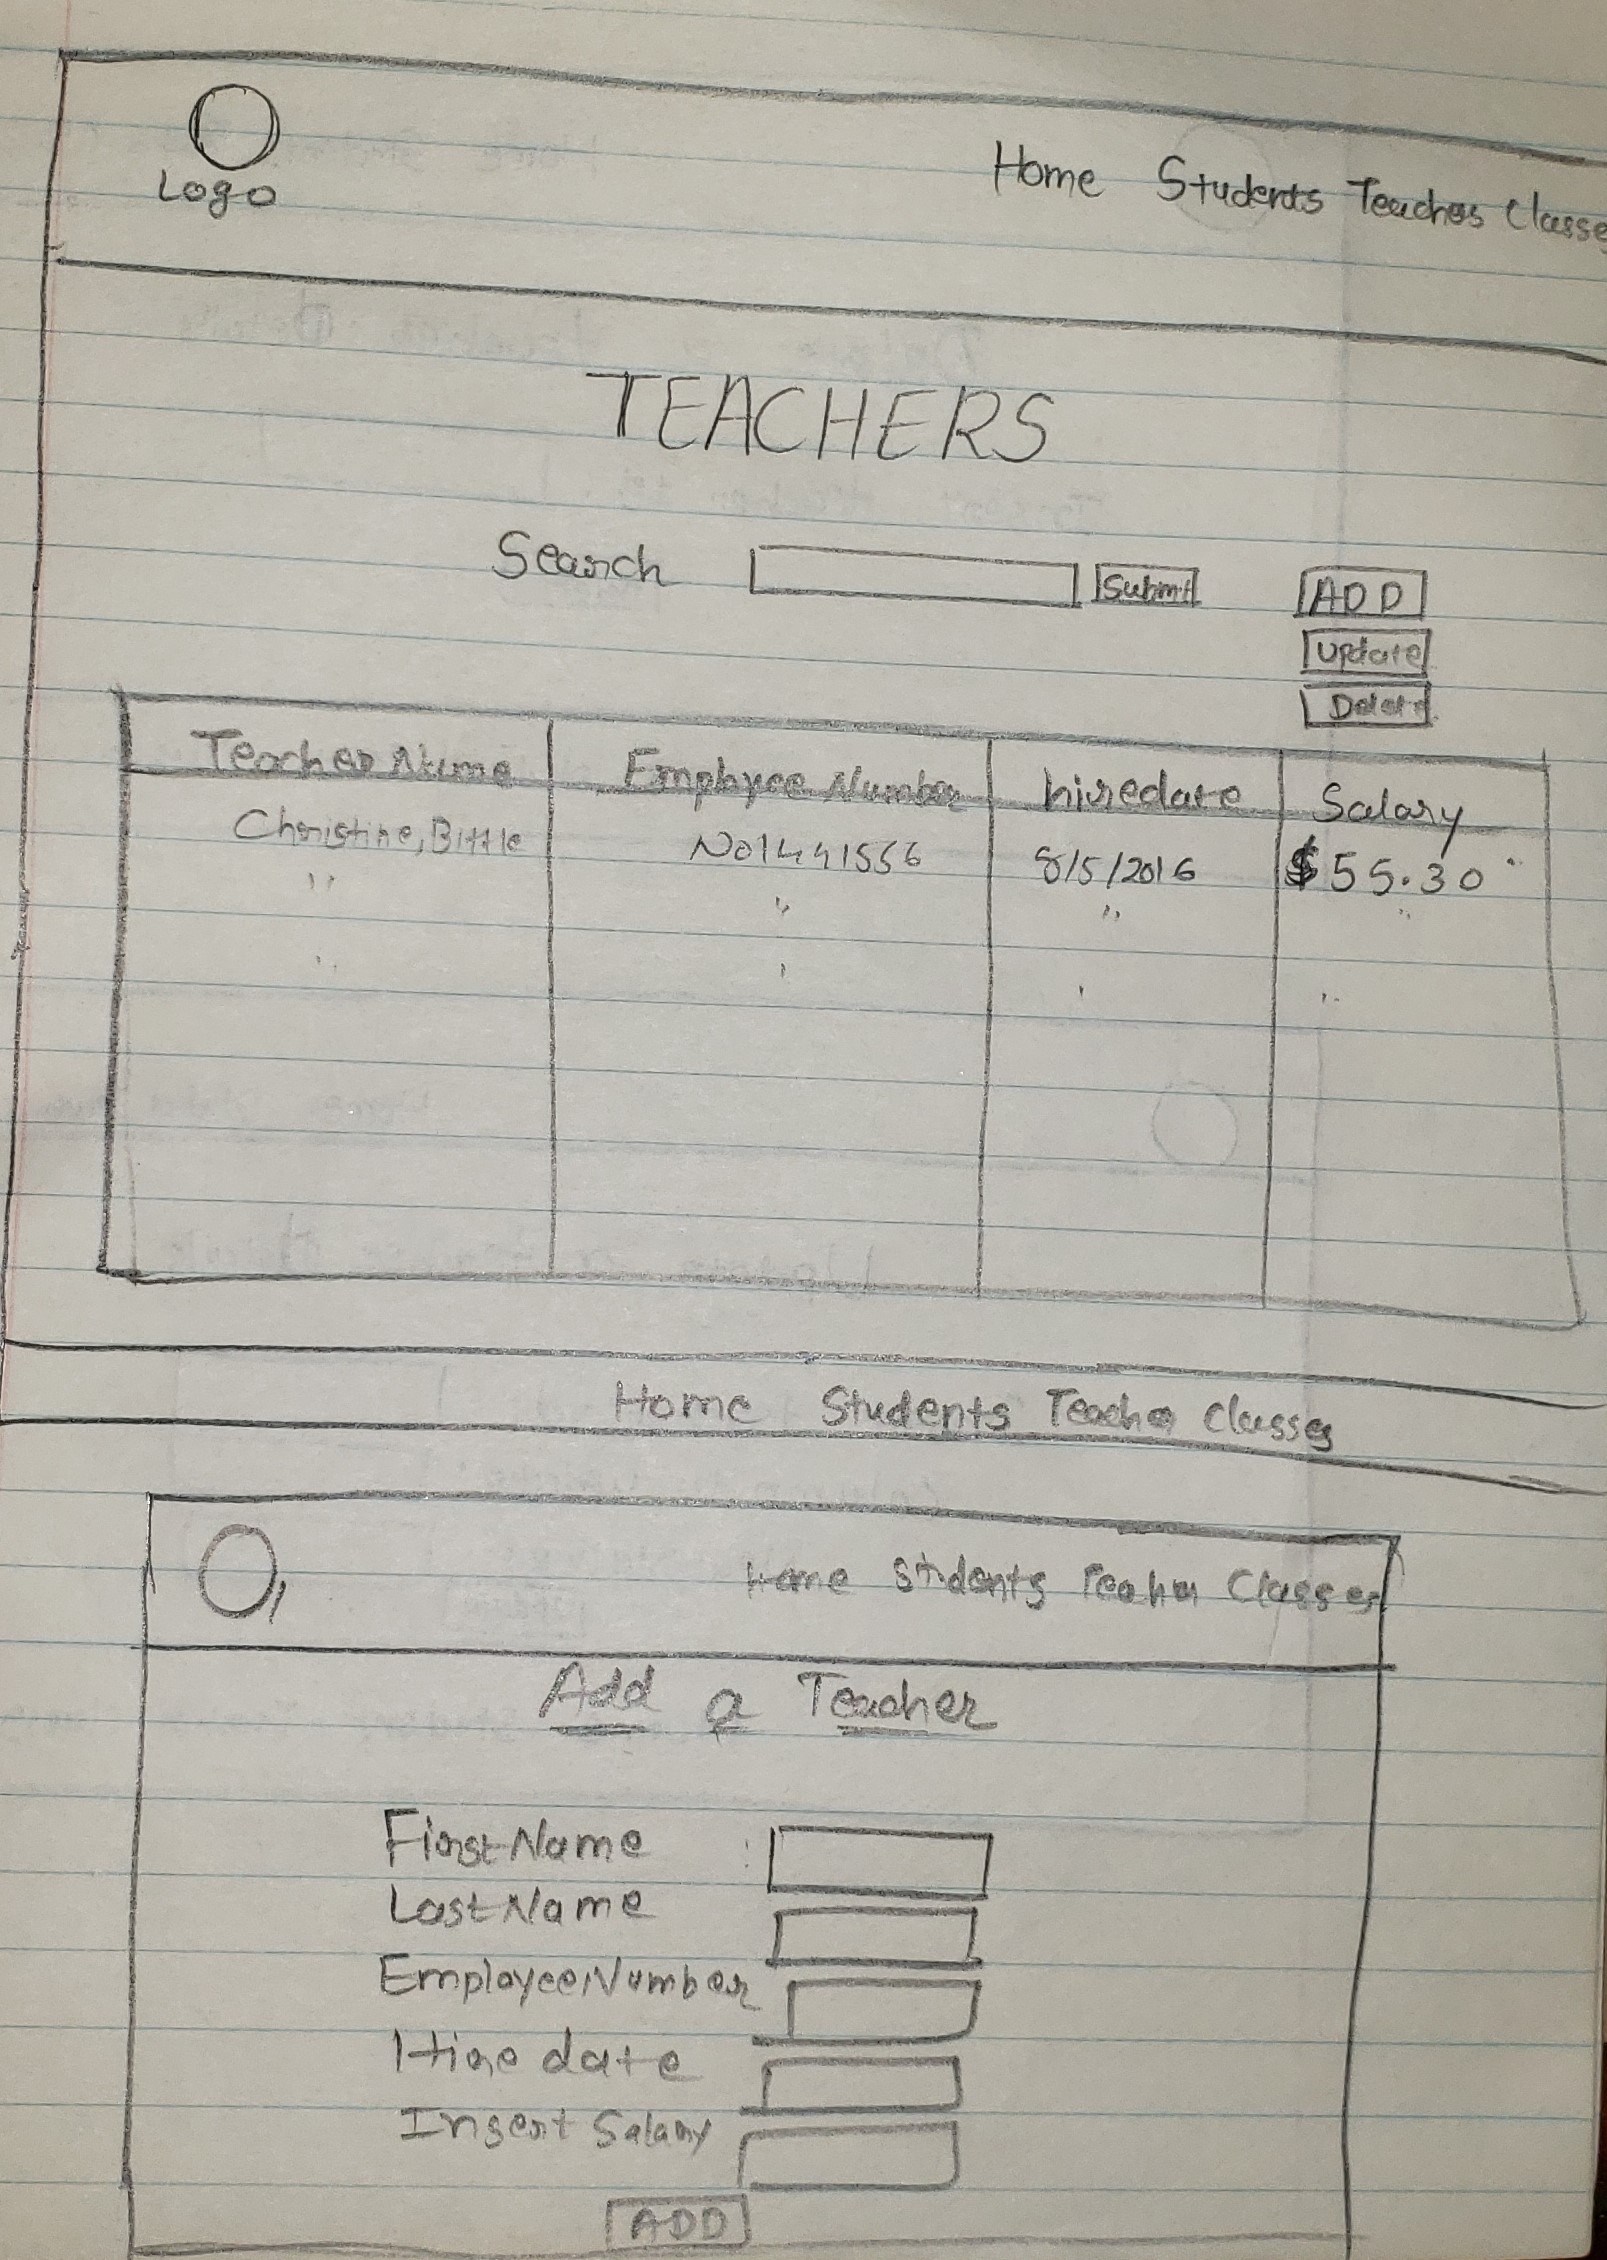 Logo
Home Students Teachers Classes
TEACHERS
Search Submit ADD
Update
Delete
Teacher Name Employee Number hiredate Salary
Christine, Bittle 8/5/2016 $55.30
" " " "
Home Students Teacher Classes
Home Students Teacher Classes
Add a Teacher
First Name :
Last Name
Employee Number
Hire date
Insert Salary
ADD